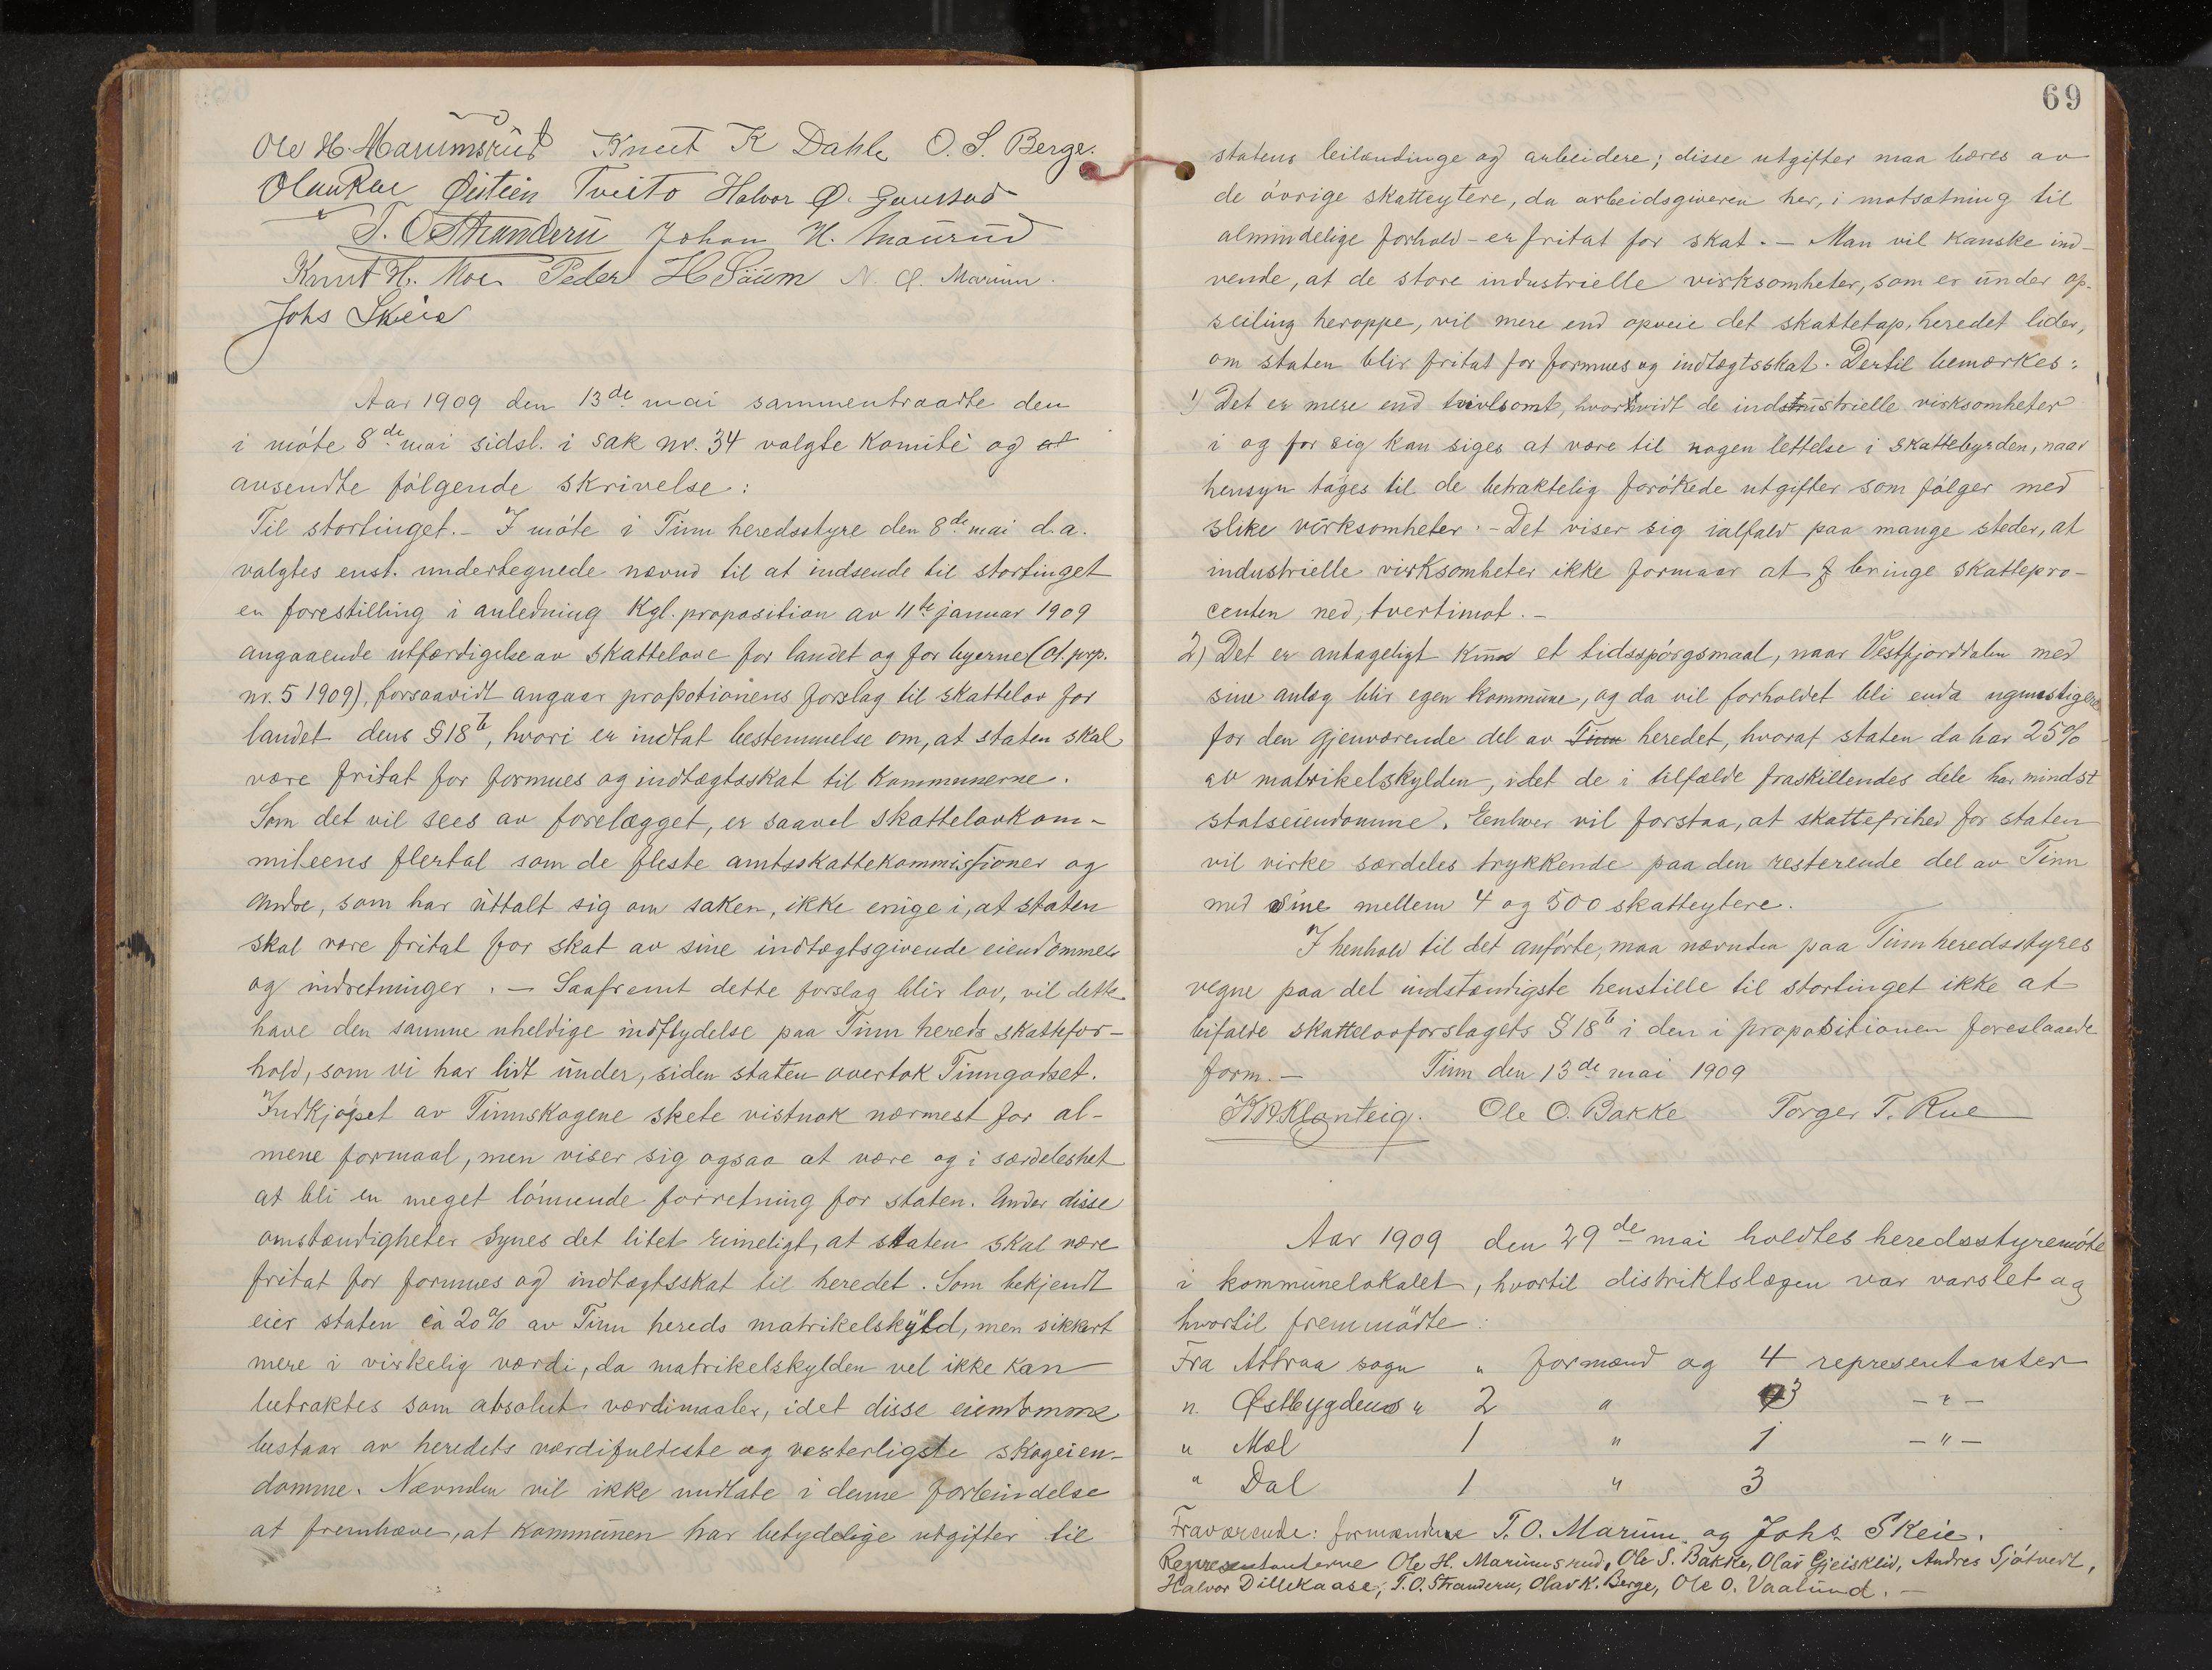 Ole H. Marumsrud Knut K Dahle O. S. Berge.
Olav Rue Øistein Tveito Halvor Ø. Gaustad
T. O. Stranderu Johan H. Maurud
Knut H. Moe Peder H Såum N. O. Marum.
Johs Skeie
Aar 1909 den 13de mai sammentraadte den
i møte 8de mai sidstl. i sak nr. 34 valgte komité og at
avsendte følgende skrivelse:
Til stortinget. – I møte i Tinn heredsstyre den 8de mai d.a.
valgtes enst. undertegnede nævnd til at indsende til stortinget
en forestilling i anledning Kgl. proposition av 11te januar 1909
angaaende utfærdigelse av skattelove for landet og for byerne (ot. prp.
nr. 5 1909), forsaavidt angaar propotionens forslag til skattelov for
landet dens § 18 b, hvori er indtat bestemmelse om, at staten skal
være fritat for formues og indtægtsskat til kommunerne.
Som det vil sees av forelægget, er saavel skattelovkom-
miteens flertal som de fleste amtsskattekommissioner og
andre, som har uttalt sig om saken, ikke enige i, at staten
skal være fritat for skat av sine indtægtsgivende eiendommele
og indretninger. – Saafremt dette forslag blir lov, vil dette
have den samme uheldige indflydelse paa Tinn hereds skattefor-
hold, som vi har lidt under, siden staten overtok Tinngodset.
Indkjøpet av Tinnskogene skete vistnok nærmest for al-
mene formaal, men viser sig ogsaa at være og i særdeleshet
at bli en meget lønnende forretning for staten. Under disse
omstændigheter synes det litet rimeligt, at staten skal være
fritat for formues og indtægtsskat til heredet. Som bekjendt
eier staten ca 20% av Tinn hereds matrikelskyld, men sikkert
mere i virkelig værdi, da matrikelskylden vel ikke kan
betraktes som absolut værdimaaler, idet disse eiendomme
bestaar av heredets værdifuldeste og vesterligste skogeien-
domme. Nævnden vil ikke undlate i denne forbindelse
at fremhæve, at kommunen har betydelige utgifter til
69
statens leilændinge og arbeidere; disse utgifter maa bæres av
de øvrige skatteytere, da arbeidsgiveren her, i motsætning til
almindelige forhold – er fritat for skat. – Man vil kanske ind-
vende, at de store industrielle virksomheter, som er under op-
seiling heroppe, vil mere end opveie det skattetap, heredet lider,
om staten blir fritat for formues og indtægtsskat. Dertil bemærkes:
1) Det er mere end tvivlsomt, hvorvidt de industrielle virksomheter
i og for sig kan siges at være til nogen lettelse i skattebyrden, naar
hensyn tages til de betraktelig forøkede utgifter som følger med
slike virksomheter. – Det viser sig ialfald paa mange steder, at
industrielle virksomheter ikke formaar at bringe skattepro-
centen ned, tvertimot. –
2) Det er antageligt kun et tidsspørgsmaal, naar Vestfjorddalen med
sine anlæg blir egen kommune, og da vil forholdet bli enda ugunstigere
for den gjenværende del av Tinn heredet, hvoraf staten da har 25%
av matrikelskylden, idet de i tilfælde fraskillendes dele har mindst
statseiendomme. Eenhver vil forstaa, at skattefrihed for staten
vil virke særdeles trykkende paa den resterende del av Tinn
med sine mellem 4 og 500 skatteytere.
I henhold til det anførte, maa nævnden paa Tinn heredsstyres
vegne paa det indstændigste henstille til stortinget ikke at
bifalde skattelovforslagets § 18 b i den i propositionen foreslaaede
form. – Tinn den 13de mai 1909
K A Klonteig. Ole O. Bakke Torger T. Rue
Aar 1909 den 29de mai holdtes heredsstyremøte
i kommunelokalet, hvortil distriktslægen var varslet og
hvortil fremmødte:
Fra Attraa sogn " formænd og 4 representanter
" Østbygdens " 2 " 3 – " –
" Mæl 1 " 1 – " –
" Dal 1 " 3
Fraværende: formændene T. O. Marum og Johs Skeie.
Representanterne Ole H. Marumsrud, Ole S. Bakke, Olav Gjeisklid, Andres Sjøtvedt,
Halvor Dillekaase, T. O. Stranderu, Olav K. Berge, Ole O. Vaalund. –